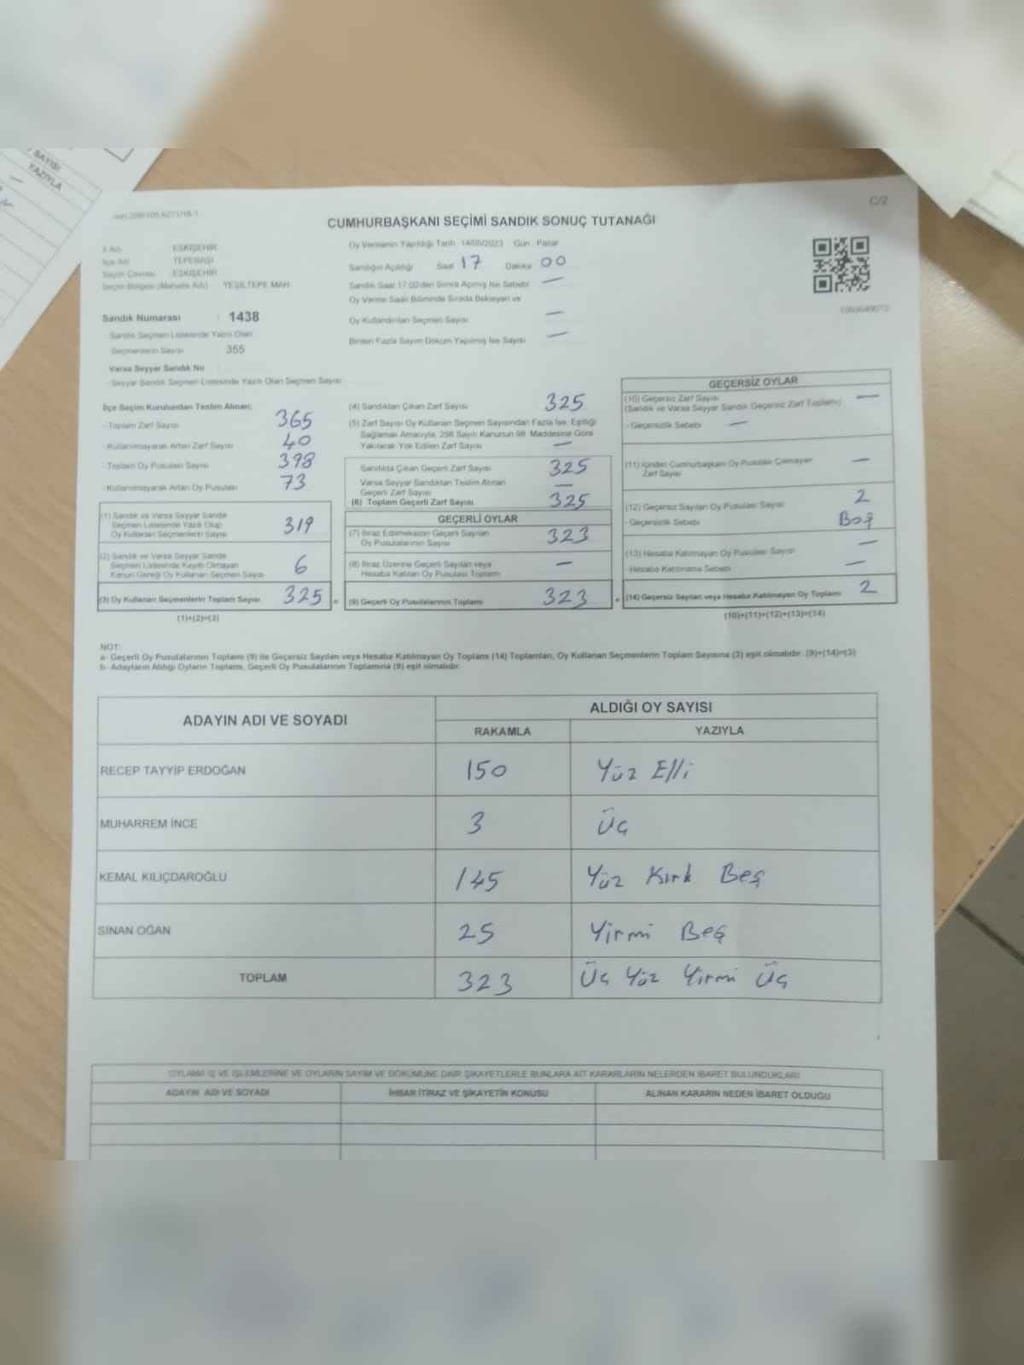 SAYISI
YAZIYLA
C/2
CUMHURBAŞKANI SEÇİMİ SANDIK SONUÇ TUTANAĞI
İl Adı ESKİŞEHİR
İlçe Adı TEPEBAŞI
Seçim Çevresi ESKİŞEHİR
Seçim Bölgesi (Mahalle Adı) YEŞİLTEPE MAH.
Sandık Numarası : 1438
- Sandık Seçmen Listesinde Yazılı Olan
Seçmenlerin Sayısı 355
Varsa Seyyar Sandık No
- Seyyar Sandık Seçmen Listesinde Yazılı Olan Seçmen Sayısı
Oy Vermenin Yapıldığı Tarih : 14/05/2023 Gün : Pazar
Sandığın Açıldığı Saat 17 Dakika 00
Sandık Saat 17.00'den Sonra Açılmış İse Sebebi —
Oy Verme Saati Bitiminde Sırada Bekleyen ve
Oy Kullandırılan Seçmen Sayısı —
Birden Fazla Sayım Döküm Yapılmış İse Sayısı —
İlçe Seçim Kurulundan Teslim Alınan:
- Toplam Zarf Sayısı 365
- Kullanılmayarak Artan Zarf Sayısı 40
- Toplam Oy Pusulası Sayısı 398
- Kullanılmayarak Artan Oy Pusulası 73
(1) Sandık ve Varsa Seyyar Sandık
Seçmen Listesinde Yazılı Olup
Oy Kullanan Seçmenlerin Sayısı 319
(2) Sandık ve Varsa Seyyar Sandık
Seçmen Listesinde Kayıtlı Olmayan
Kanun Gereği Oy Kullanan Seçmen Sayısı 6
(3) Oy Kullanan Seçmenlerin Toplam Sayısı 325 =
(1)+(2)=(3)
(4) Sandıktan Çıkan Zarf Sayısı 325
(5) Zarf Sayısı Oy Kullanan Seçmen Sayısından Fazla İse, Eşitliği
Sağlamak Amacıyla, 298 Sayılı Kanunun 98. Maddesine Göre
Yakılarak Yok Edilen Zarf Sayısı —
Sandıkta Çıkan Geçerli Zarf Sayısı 325
Varsa Seyyar Sandıktan Teslim Alınan
Geçerli Zarf Sayısı —
(6) Toplam Geçerli Zarf Sayısı 325
GEÇERLİ OYLAR
(7) İtiraz Edilmeksizin Geçerli Sayılan
Oy Pusulalarının Sayısı 323
(8) İtiraz Üzerine Geçerli Sayılan veya
Hesaba Katılan Oy Pusulası Toplamı —
(9) Geçerli Oy Pusulalarının Toplamı 323 +
GEÇERSİZ OYLAR
(10) Geçersiz Zarf Sayısı
(Sandık ve Varsa Seyyar Sandık Geçersiz Zarf Toplamı) —
- Geçersizlik Sebebi —
(11) İçinden Cumhurbaşkanı Oy Pusulası Çıkmayan
Zarf Sayısı —
(12) Geçersiz Sayılan Oy Pusulası Sayısı 2
- Geçersizlik Sebebi Boş
(13) Hesaba Katılmayan Oy Pusulası Sayısı —
- Hesaba Katılmama Sebebi —
(14) Geçersiz Sayılan veya Hesaba Katılmayan Oy Toplamı 2
(10)+(11)+(12)+(13)=(14)
NOT:
a- Geçerli Oy Pusulalarının Toplamı (9) ile Geçersiz Sayılan veya Hesaba Katılmayan Oy Toplamı (14) Toplamları, Oy Kullanan Seçmenlerin Toplam Sayısına (3) eşit olmalıdır. (9)+(14)=(3)
b- Adayların Aldığı Oyların Toplamı, Geçerli Oy Pusulalarının Toplamına (9) eşit olmalıdır.
ADAYIN ADI VE SOYADI ALDIĞI OY SAYISI
RAKAMLA YAZIYLA
RECEP TAYYİP ERDOĞAN 150 Yüz Elli
MUHARREM İNCE 3 Üç
KEMAL KILIÇDAROĞLU 145 Yüz Kırk Beş
SİNAN OĞAN 25 Yirmi Beş
TOPLAM 323 Üç Yüz Yirmi Üç
OYLAMA İŞ VE İŞLEMLERİNE VE OYLARIN SAYIM VE DÖKÜMÜNE DAİR ŞİKAYETLERLE BUNLARA AİT KARARLARIN NELERDEN İBARET BULUNDUKLARI
ADAYIN ADI VE SOYADI İHBAR İTİRAZ VE ŞİKAYETİN KONUSU ALINAN KARARIN NEDEN İBARET OLDUĞU